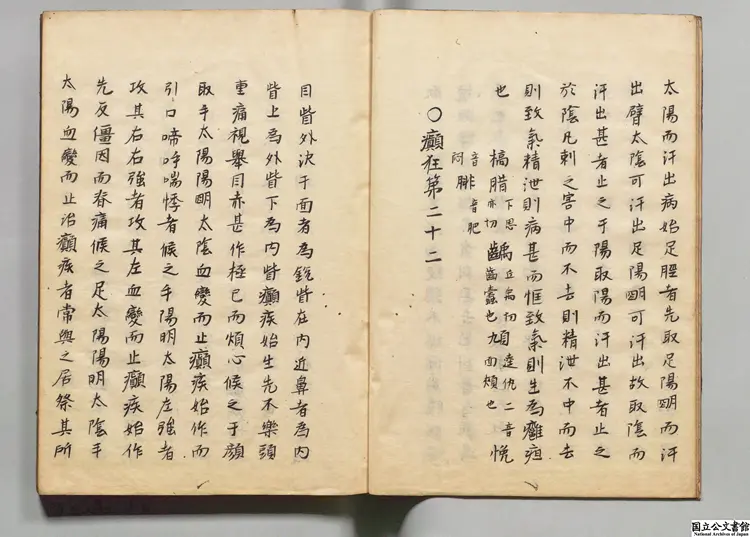 太陽而汗出病始足脛者先取足陽明而汗
出臂太陰可汗出足陽明可汗出故取陰而
汗出甚者止之于陽取陽而汗出甚者止之
於陰凡刺之害中而不去則精泄不中而去
則致氣精泄則病甚而恇致氣則生為癰疽
也
槁腊下思亦切 齲丘禹切齒蠹也 頄逵仇二音九面頰也 悗
音悶 腓音肥
○癲狂第二十二
目眥外決于面者為銳眥在内近鼻者為内
眥上為外眥下為内眥癲疾始生先不樂頭
重痛視舉目赤甚作極已而煩心候之于顔
取手太陽陽明太陰血變而止癲疾始作而
引口啼呼喘悸者候之手陽明太陽左強者
攻其右右強者攻其左血變而止癲疾始作
先反僵因而脊痛候之足太陽陽明太陰手
太陽血變而止治癲疾者常與之居祭其所
国立公文書館
National Archives of Japan